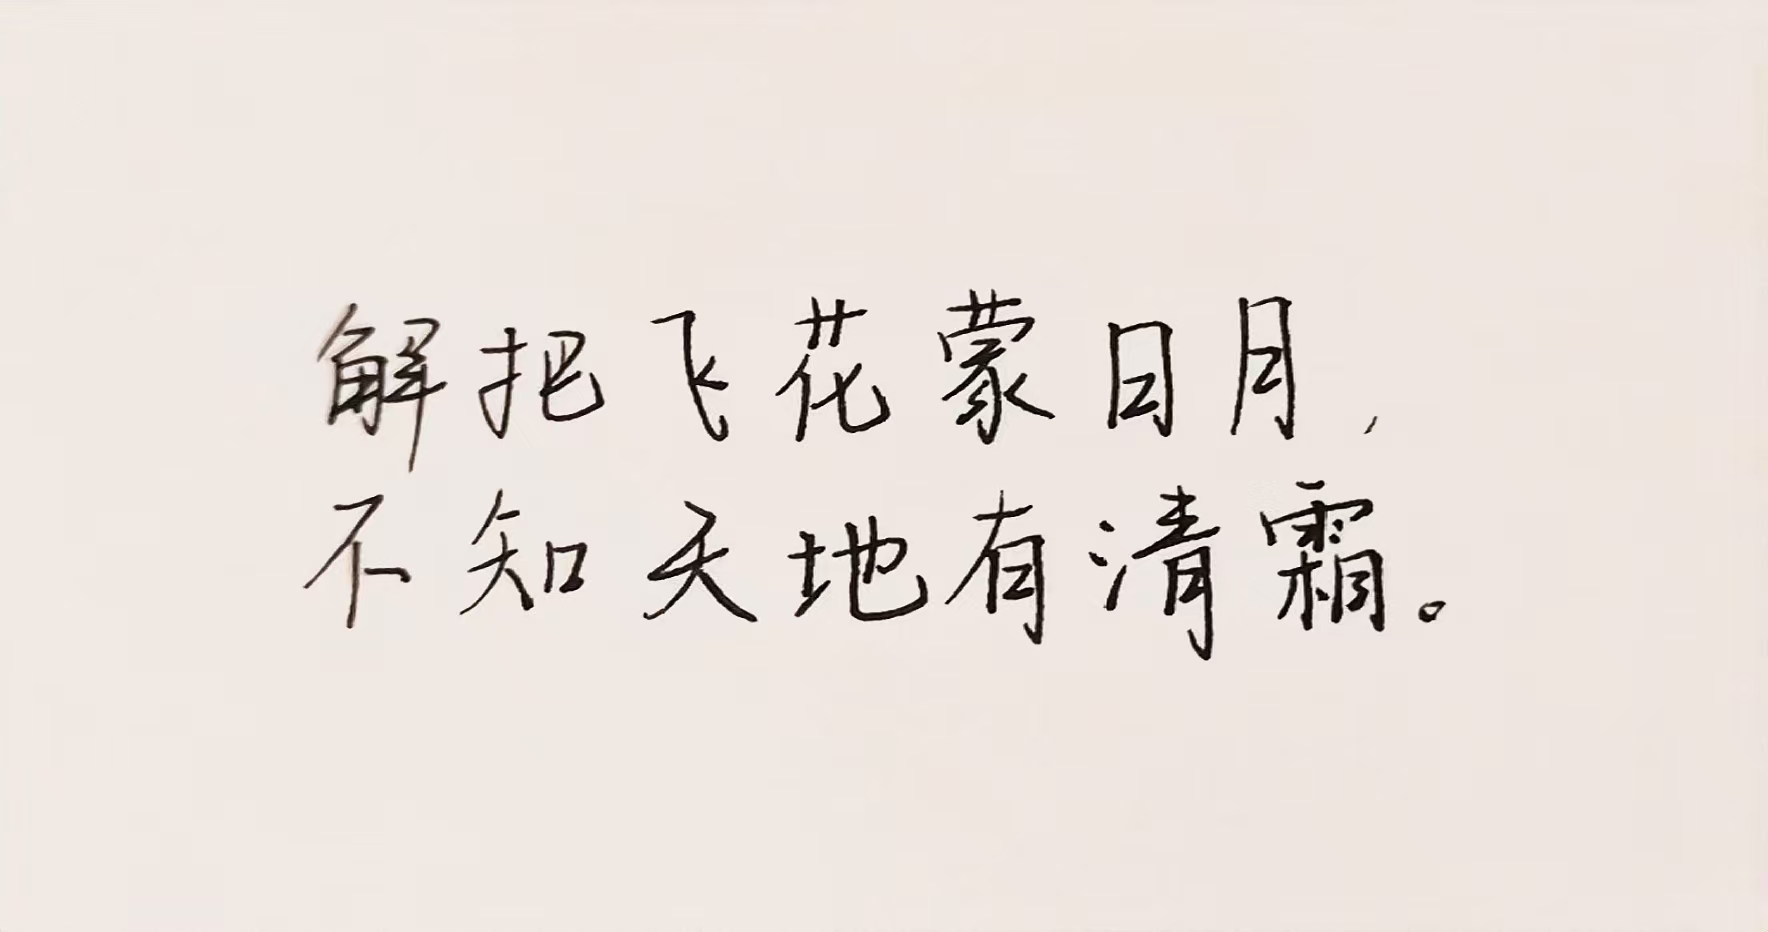 解把飞花蒙日月,
不知天地有清霜。